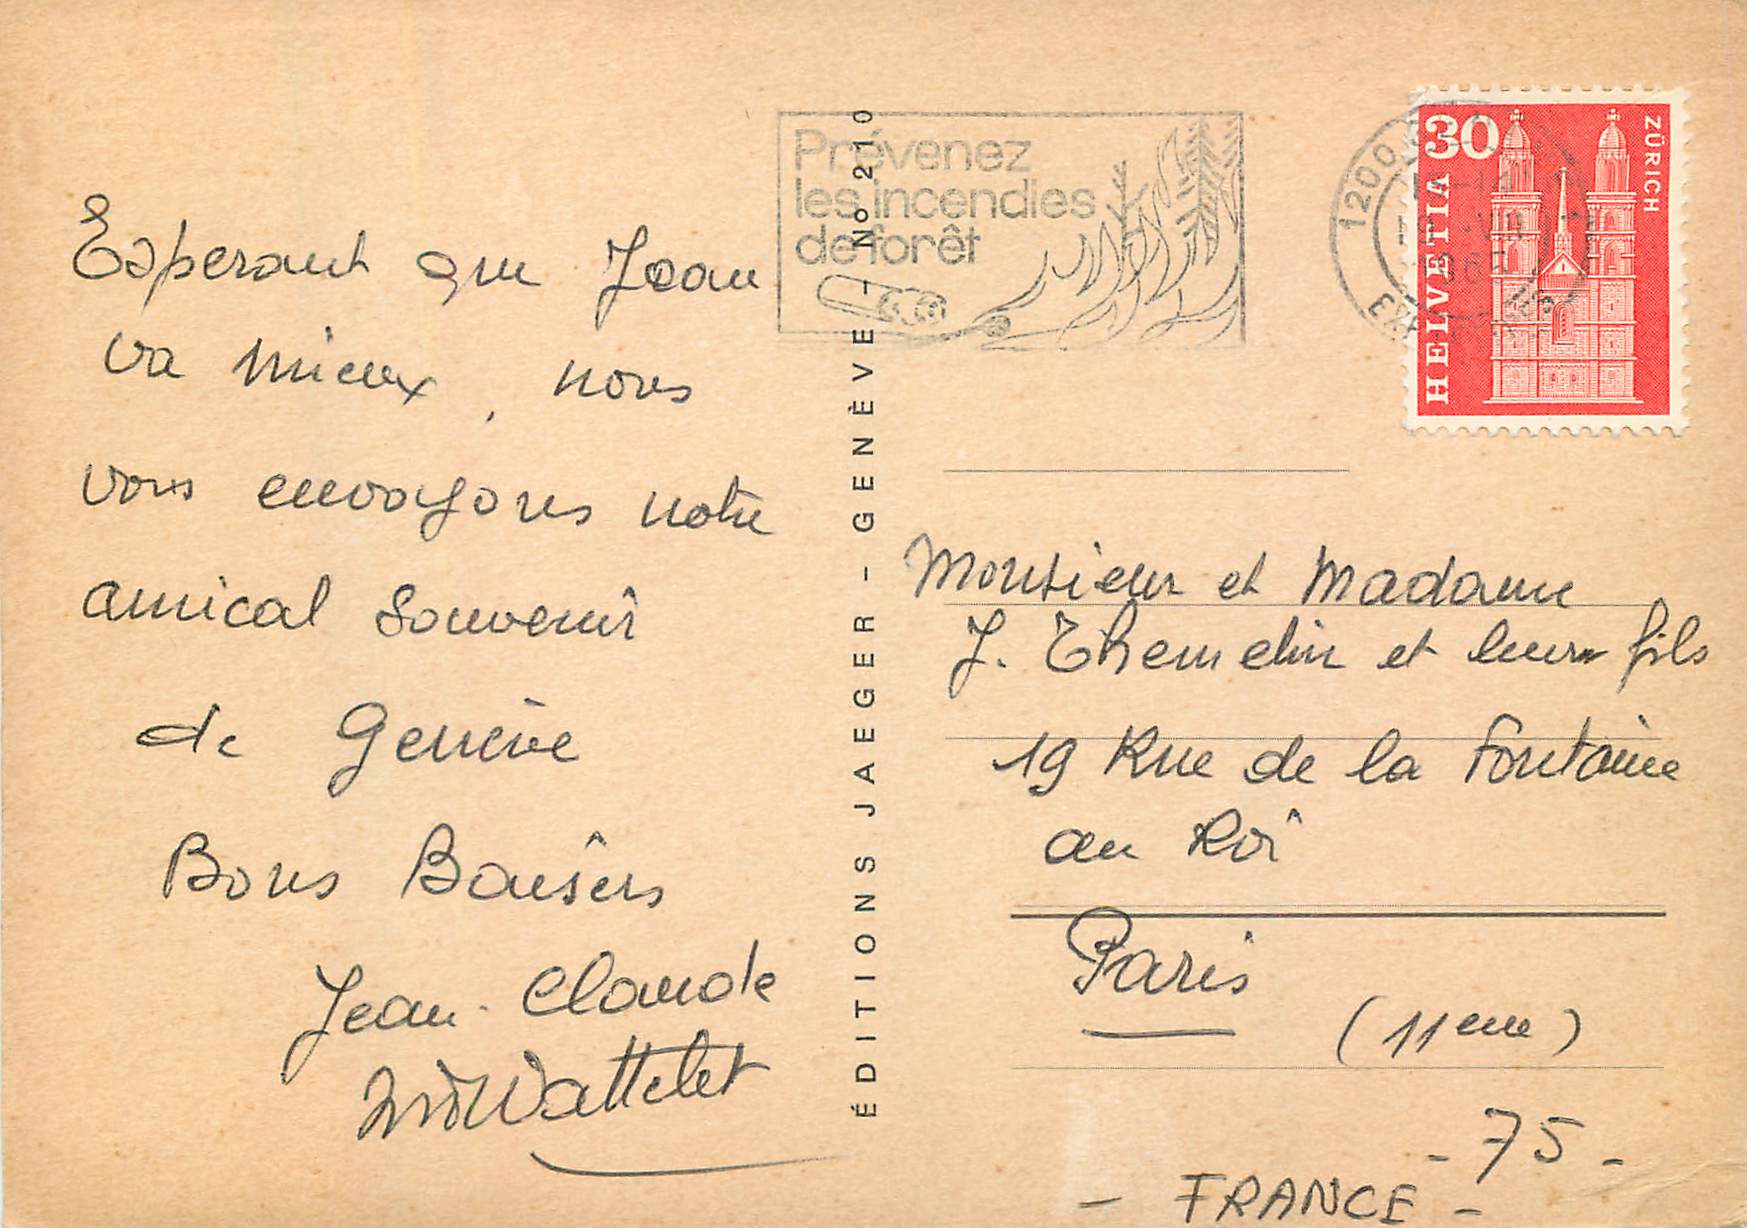 Esperant que Jean
va mieux, nous
vous envoyons notre
amical souvenir
de Genève
Bons Baisers
Jean-Claude
Wattelet
ÉDITIONS JAEGER - GENÈVE - No 210
Prévenez
les incendies
de forêt
1200
30
ZÜRICH
HELVETIA
Monsieur et Madame
J. Themelin et leurs fils
19 Rue de la Fontaine
au Roi
Paris
(11eme)
- 75 -
- FRANCE -